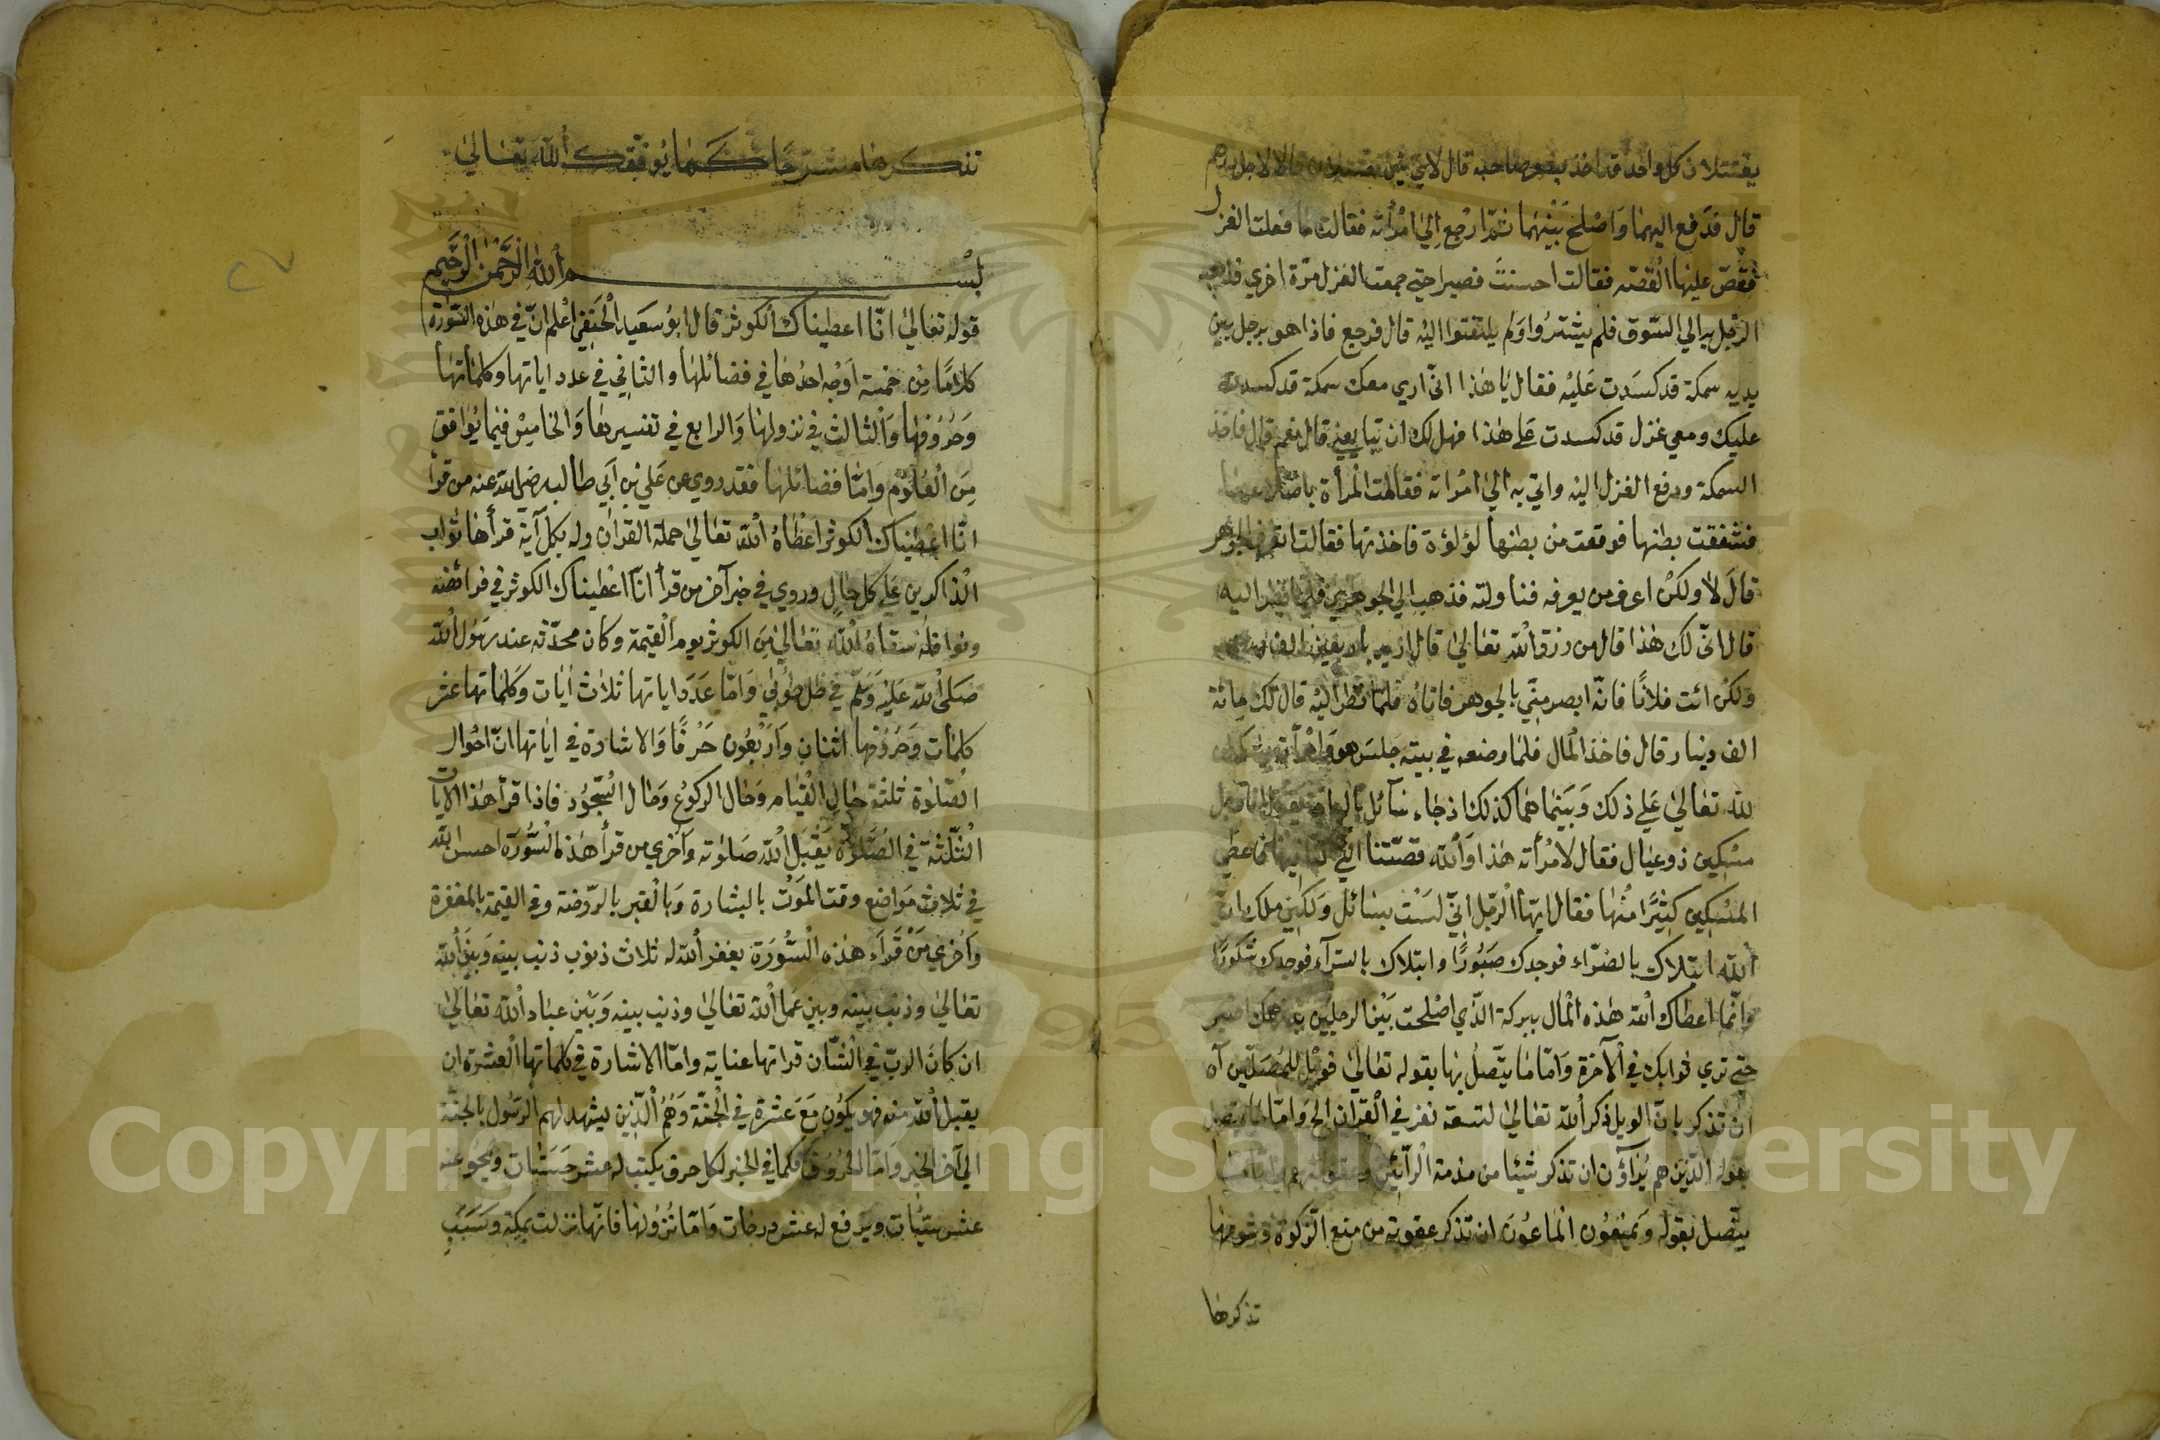 يقتتلان كل واحد قد اخذ بصاحبه قال لاي شئ تقتتلان قالا لاجل درهم
قال فدفع اليهما وَاصْلحَ بَيْنهما ثمّ ارجع اِلي امْرأته فقالت ما فعلت الغزل
فقصّ عليْها القصّه فقالت احسنتَ فصبرا حتي جمعت الغزل مرّة اخري
الرّجل به الي السّوق فلم يشتروُا وَلم يلتفتوا اليْه قال فرجع فاذا هو برجل بين
يديه سمكة قد كسَدت عَليْه فقال يَا هٰذا انّي اري معك سمكة قد كسدت
عليك ومعي غزل قد كسدت عَلي هٰذا فهل لك ان تبايعني قال نعم قال فاخذ
السمكة ودفع الغزل اليْه واتي به الي امْراته فقالت المْرأة
فشققت بطنها فوقعت من بطنها لؤلؤة فاخذتها فقالت اتعرف الجوهر
قالَ لاٰ ولكنْ اعرف من يعرفه فناولته فذهب الي الجوهري فلما نظر اليه
قال انّي لك هٰذا قال من رزق الله تعٰاليٰ قال اريد باربعين الف درهم
وَلكن ائت فلانًا فانّه ابصر منِّي بالجوهر فاتاهُ فلمّا نظر اليْه قال لك مِائة
الف دينار قال فاخذ المْال فلمٰا وضعه في بيته جَلسَ هو وَامْرأته يشكران
لله تعٰاليٰ عَلي ذلك وَبَينما هٰمٰا كذلك اذ جٰاء سٰائل بالباب يقول انا رجل
مسْكين ذو عيٰال فقال لامْرأته هٰذا وَالله قصّتنا التي كنا فيها فاعطي
المْسْكين كثيرًا منْهٰا فقال ايّهٰا الرّجل انّي لسَتُ بسٰائل وَلكنِّي ملك ان
الله ابتلاك بالضرّاء فوجدك صَبُورًا وابتلاك بالسرّآء فوجدك شكورًا
وَانّما اعطاك الله هٰذه المْال ببركة الّذي اصْلحت بَيْن الرجليْن بدرهمك اصبر
حتي تري ثوابك في الآخرة وَامّا مٰا يتّصلُ بهٰا بقوله تعٰاليٰ فويْل للمُصَلّين
انْ تذكر بانّ الويل ذكر الله تعٰاليٰ لتسعة نفر في القرآن الخ وَامّا ما يتصل
بقوله الّذين هم يُرَاؤنَ ان تذكر شيئا من مذمة الْرآئين
يتّصل بقوله وَيَمنعُون المْاعُونَ ان تذكر عقوبة من منع الزّكوة وشومهٰا
تذكرهٰا
تذكرهٰا مشرحًا كمٰا يوفّقك الله تعٰالي
بسْم الله الرَّحْمٰن الرَّحِيم
قوله تعٰاليٰ انّا اعطيناك الكوثر قال ابوُ سَعيد الحْنفِي اعْلم انّ في هٰذه السّورة
كلامًا من خمسة اَوْجه احدُهٰا في فضائلهٰا والثاني في عدد اياتها وكلمٰاتهٰا
وَحُرُوفهٰا وَالثالث في نزولهٰا وَالرابع في تفسيرهٰا وَالخامِسُ فيمٰا يوُافق
مِنَ العُلوُم وَامّا فضائلهٰا فقد روي عن عَلي بن اَبي طالب رضي الله عنه من قرأ
انّا اعْطيناك الكوثر اعْطاهُ الله تعٰاليٰ حملة القرآن وله بكل آية قرأها ثواب
الْذاكرين عَلي كل حٰالٍ وروي في خبر آخر من قرأ انّآ اعْطيناك الكوثر في فرائضه
ونوافله سَقاهُ الله تعٰاليٰ مِنَ الكوثر يوم القيٰمة وكان محدّثه عند رسوُل الله
صَلي الله عَليْه وَسَلم في ظل طوُبي وَامّا عَدَد اياتها ثلاٰث اٰيٰات وَكلمٰاتها عشر
كلمٰات وَحرُوفها اثنان وَارَبْعُون حَرْفًا وَالاشارة في ايٰاتها انّ احْوال
الصّلوٰة ثلثة حٰال القيٰام وحٰال الركوعُ وَحٰال السّجوُد فاذا قرأ هٰذا الايات
الثّلثة في الصّلوٰة يَقْبَل الله صَلوٰته وَاُخري من قرأ هٰذه السُّورَة احسن الله
في ثلاٰث مَواضع وقت المَوْت بالبشارة وَبالقبر بالرّوضة وفي القيٰمة بالمغفرة
وَاُخري مَنْ قَرَاَءَ هٰذه السُّورَة يغفر الله له ثلاث ذنوب ذنب بينه وَبيْن الله
تعٰاليٰ وذنب بيْنه وبين عَمل الله تعٰاليٰ وذنب بينه وَبَيْن عبٰاد الله تعٰاليٰ
ان كانَ الربّ في الشّان قراتها عناية وامّا الاشارة في كلمٰاتها العشرة ان
يقبل الله منه فهو يكون مَعَ عَشرة في الْجنّة وَهُمُ الّذين يشهد لهم الرسُول بالجنّة
الي آخر الخبر وَامّا الحُروُف فكما في الخبر لكل حرف يكتب له عشر حَسَنٰات ويمحو عنه
عشر سيّئٰات ويرفع له عشر درجٰات وَامّا نُزوُلهٰا فانّها نزلت بمكة وسَبَبُ
Copyright © King Saud University